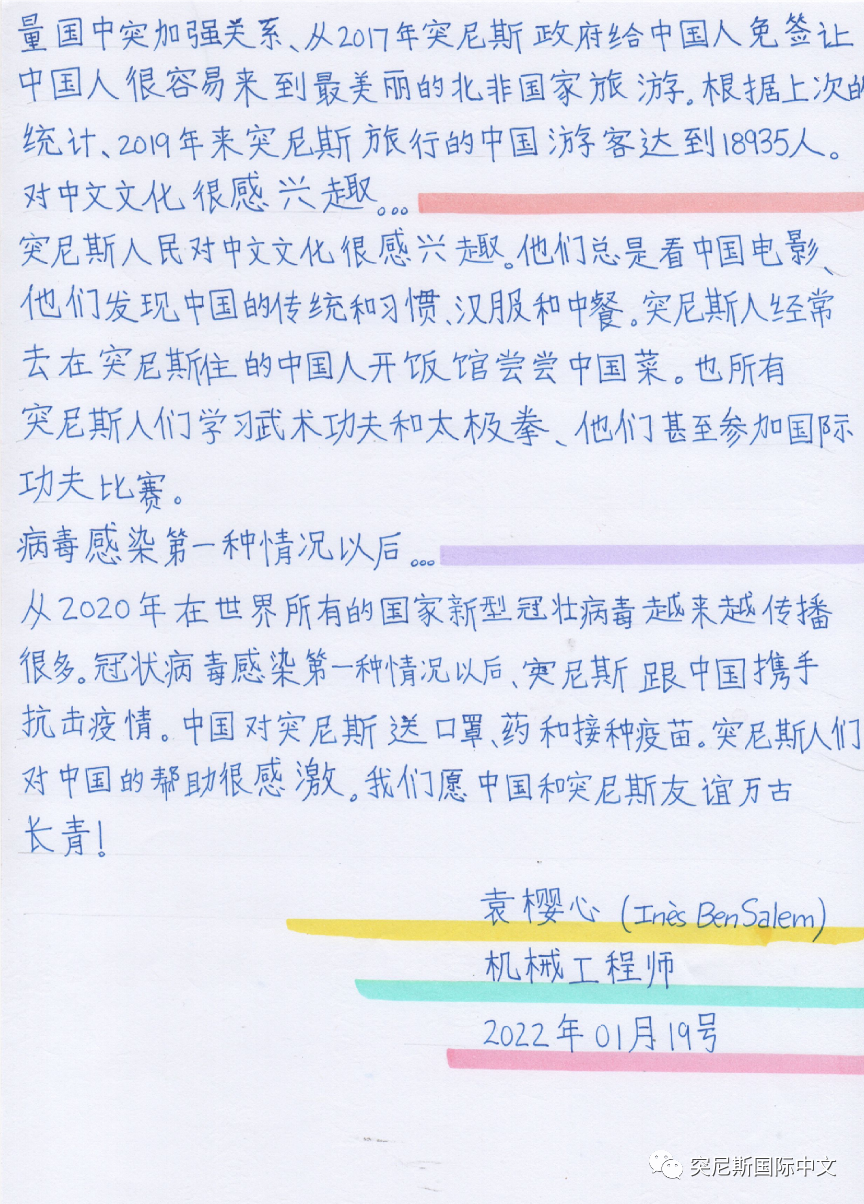 量国中突加强关系、从2017年突尼斯政府给中国人免签让
中国人很容易来到最美丽的北非国家旅游。根据上次的
统计、2019年来突尼斯旅行的中国游客达到18935人。
对中文文化很感兴趣。。。
突尼斯人民对中文文化很感兴趣。他们总是看中国电影、
他们发现中国的传统和习惯、汉服和中餐。突尼斯人经常
去在突尼斯住的中国人开饭馆尝尝中国菜。也所有
突尼斯人们学习武术功夫和太极拳、他们甚至参加国际
功夫比赛。
病毒感染第一种情况以后。。。
从2020年在世界所有的国家新型冠壮病毒越来越传播
很多。冠状病毒感染第一种情况以后、突尼斯跟中国携手
抗击疫情。中国对突尼斯送口罩、药和接种疫苗。突尼斯人们
对中国的帮助很感激。我们愿中国和突尼斯友谊万古
长青!
袁樱心 (Inès Ben Salem)
机械工程师
2022年01月19号
突尼斯国际中文